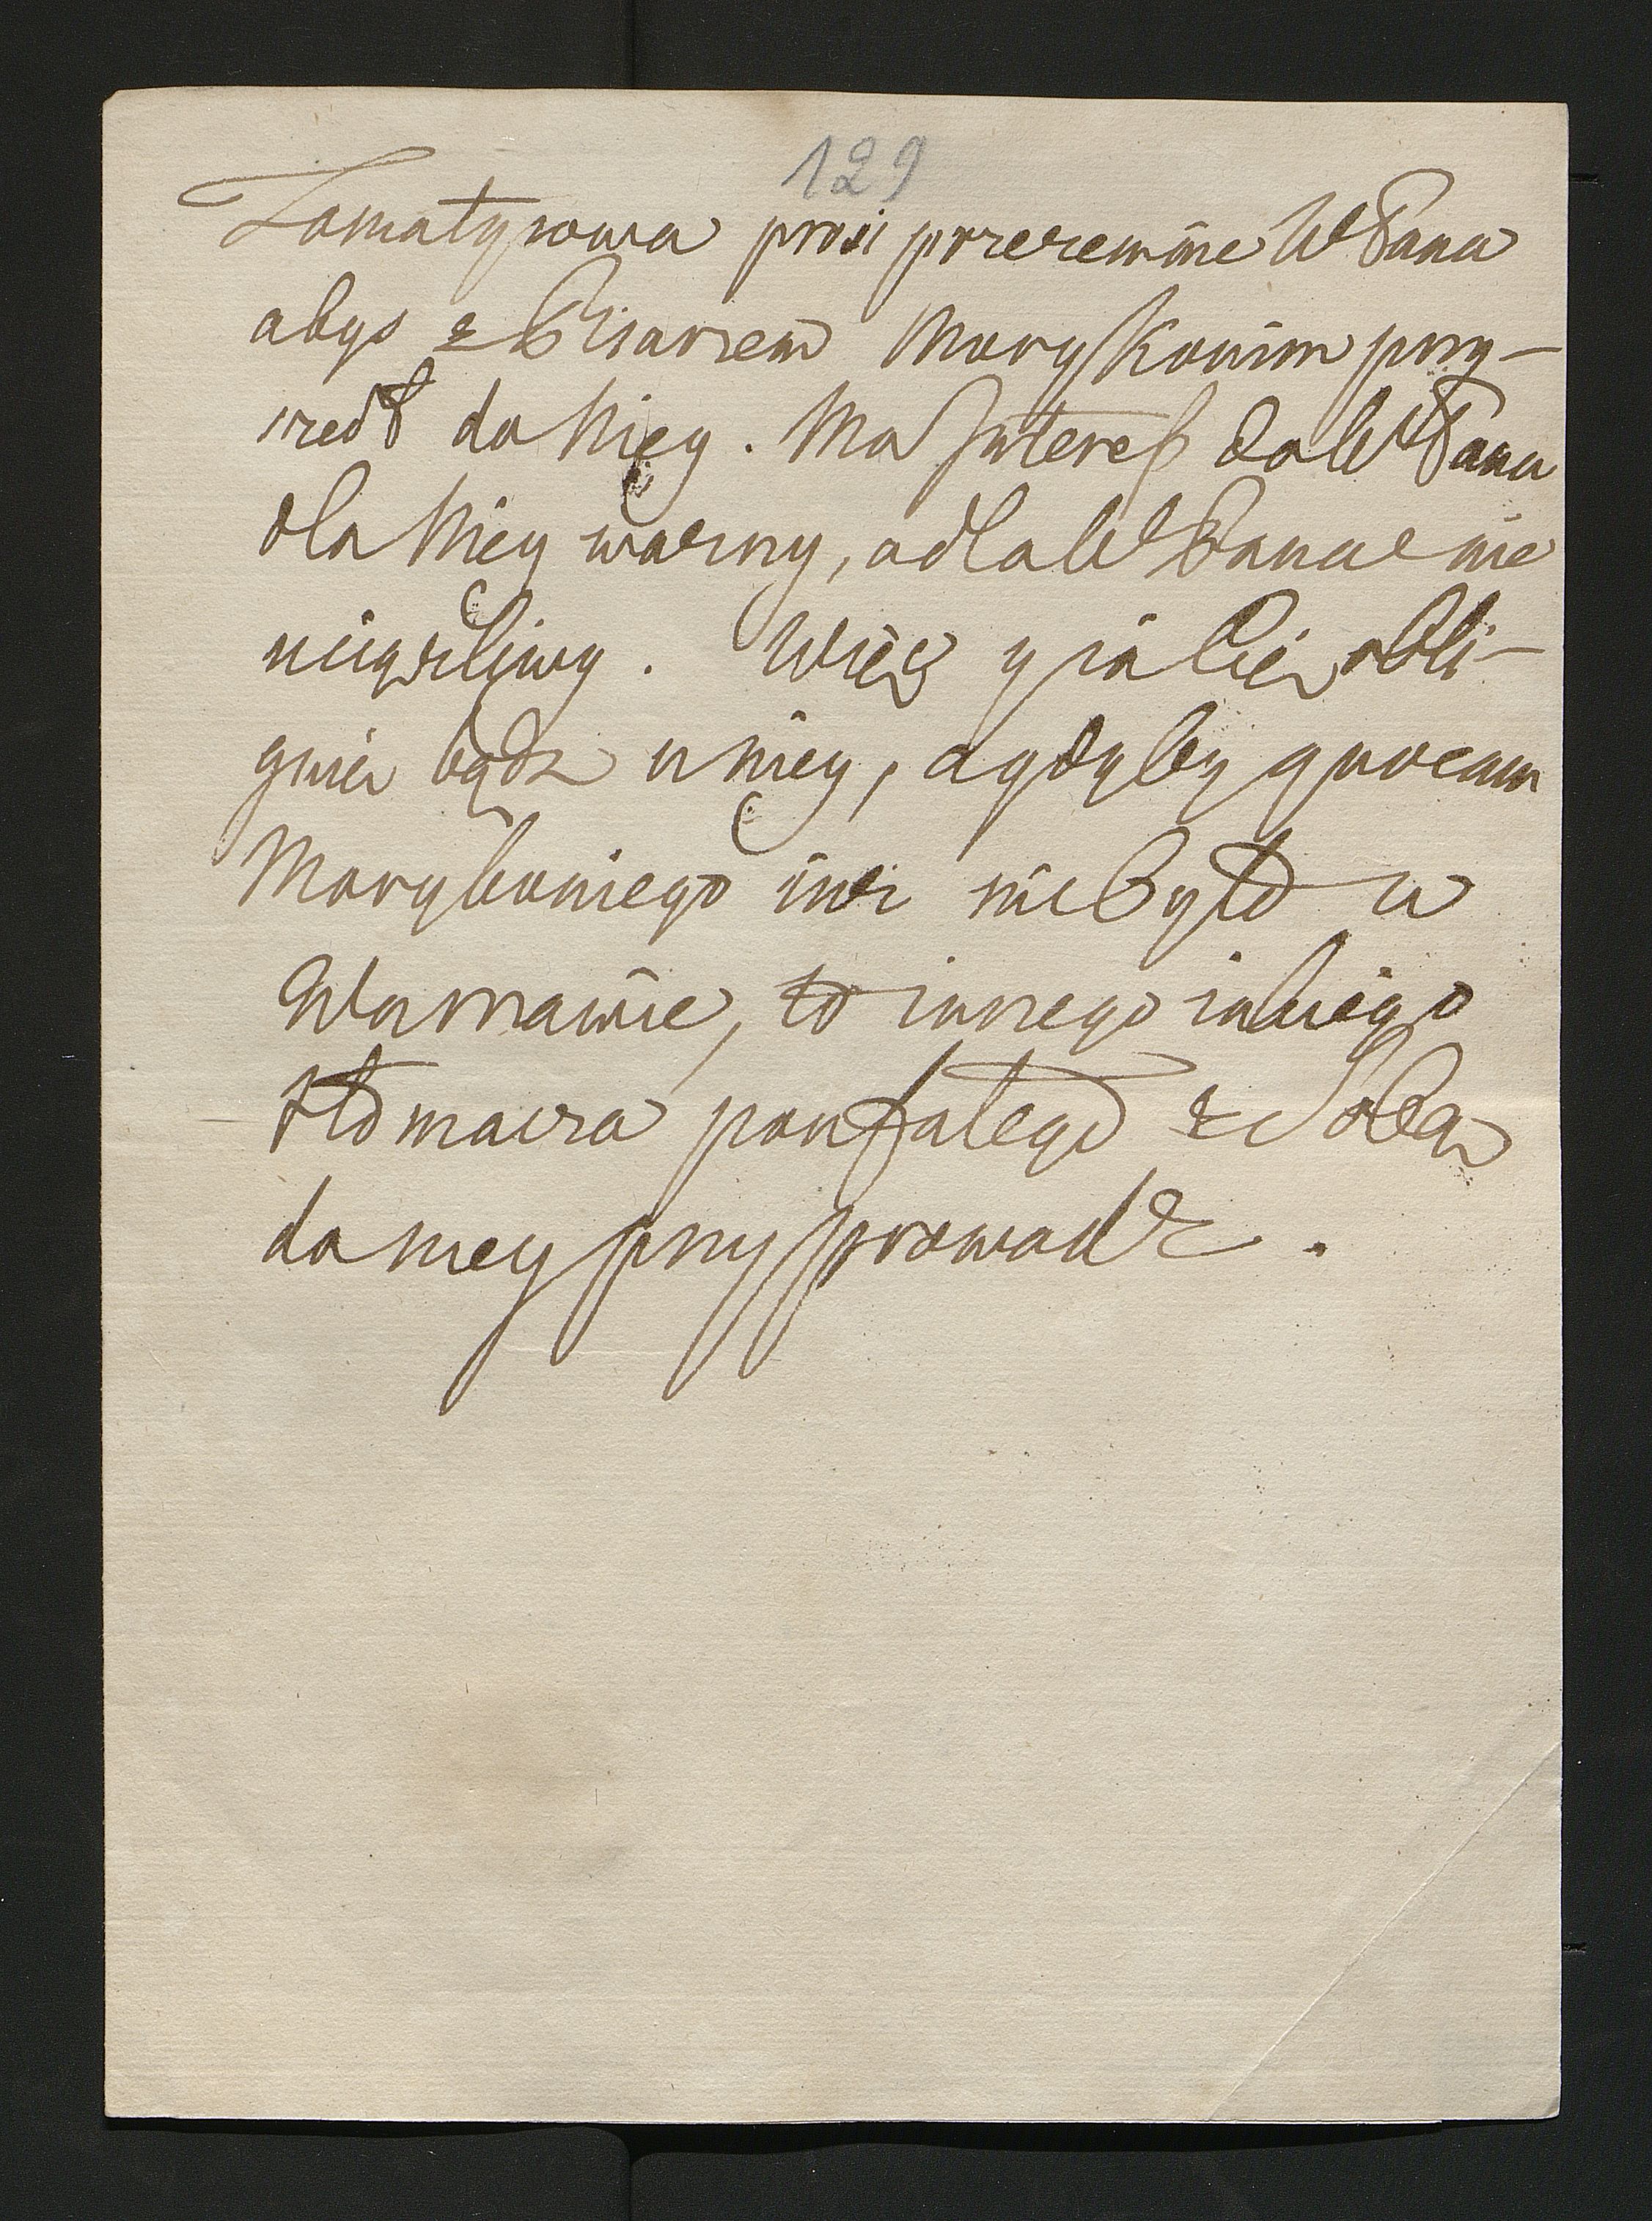 129
Tomatysowa prosi przezemnie WPana
abys z Pisarzem Morykonim przy-
szedł do Niey. Ma Interess do WPana
dla Niey ważny, a dla WPana nie
uciążliwy. Więc y ia Cię obli-
guię bądz u niey, a gdyby quocum
Morykoniego iusz nie było w
Warszawie, to innego iakiego
tłomacza poufałego z Sobą
do niey przyprowadz.